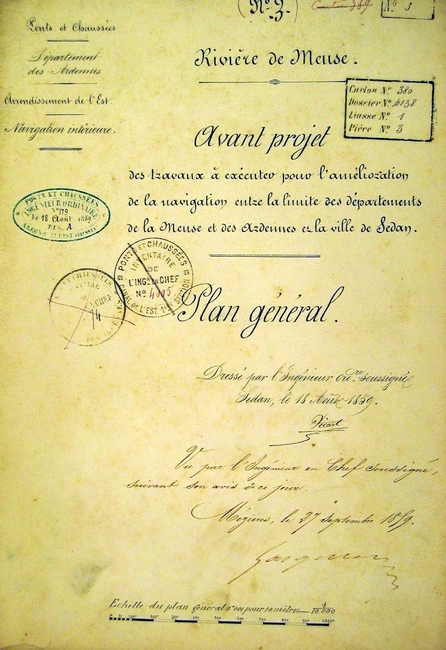 (Nº 3.)
Nº 3
Ponts et Chaussées
Département
des Ardennes
Arrondissement de l'Est
Navigation intérieure.
Rivière de Meuse.
Carton Nº 380
Dossier Nº 4138
Liasse Nº 1
Pièce Nº 3
Avant projet
des travaux à exécuter pour l'amélioration
de la navigation entre la limite des départements
de la Meuse et des Ardennes et la ville de Sedan.
PONTS ET CHAUSSÉES
INGÉNIEUR ORDINAIRE
Nº 179
Le 18 Août
PONTS ET CHAUSSÉES
INVENTAIRE
DE
L'INGr EN CHEF
Nº 4005
CANAL DE L'EST
Plan général.
Dressé par l'Ingénieur ordre soussigné
Sedan, le 18 Août 1839.
Vu par l'Ingénieur en Chef soussigné,
suivant son avis de ce jour
Mézières, le 27 septembre
Echelle du plan général